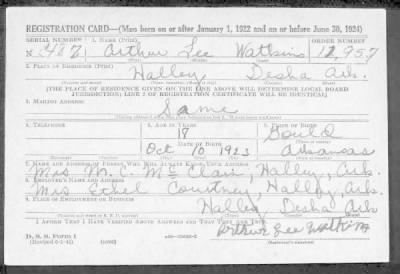 REGISTRATION CARD—(Men born on or after January 1, 1922 and on or before June 30, 1924)
SERIAL NUMBER 1. NAME (Print) ORDER NUMBER
Arthur Lee Watkins 12,957
2. PLACE OF RESIDENCE (Print)
Halley Desha Ark.
[THE PLACE OF RESIDENCE GIVEN ON THE LINE ABOVE WILL DETERMINE LOCAL BOARD
JURISDICTION; LINE 2 OF REGISTRATION CERTIFICATE WILL BE IDENTICAL]
3. MAILING ADDRESS
Same
4. TELEPHONE 5. AGE IN YEARS 6. PLACE OF BIRTH
18 Gould
Oct 10 1923 Arkansas
7. NAME AND ADDRESS OF PERSON WHO WILL ALWAYS KNOW YOUR ADDRESS
Mrs M. C. McClain, Halley, Ark.
8. EMPLOYER'S NAME AND ADDRESS
Mrs Ethel Courtney, Halley, Ark.
9. PLACE OF EMPLOYMENT OR BUSINESS
Halley, Desha Ark
I AFFIRM THAT I HAVE VERIFIED ABOVE ANSWERS AND THAT THEY ARE TRUE.
D. S. S. FORM 1
Arthur Lee Watkins